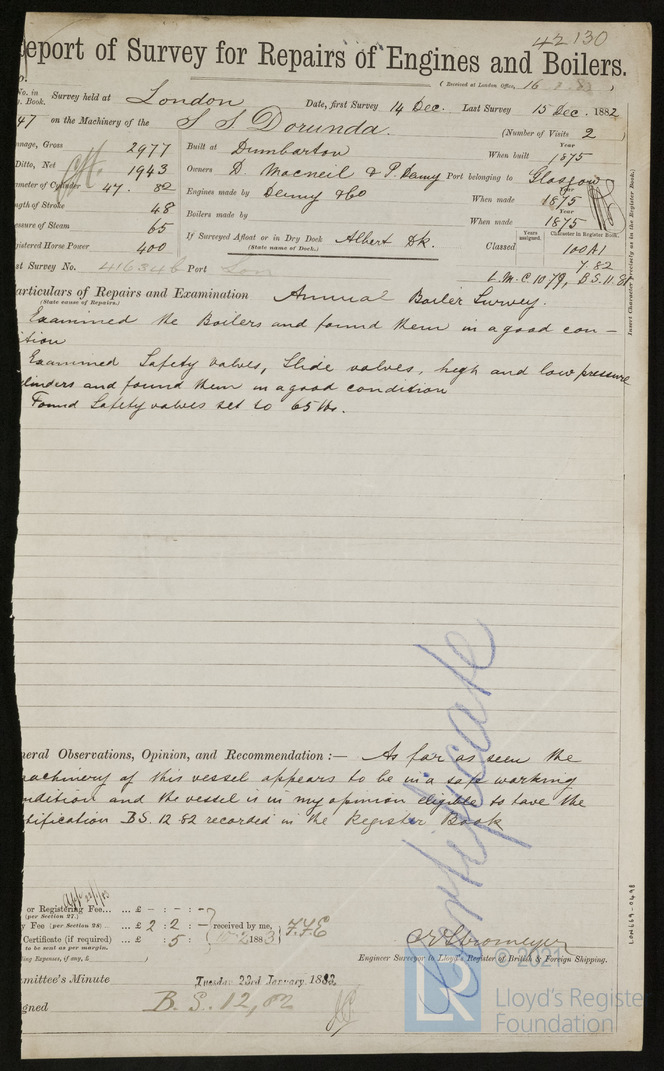 42130
eport of Survey for Repairs of Engines and Boilers.
(Received at London Office, 16
No. in
Book. Survey held at London Date, first Survey 14 Dec. Last Survey 15 Dec. 1882
47 on the Machinery of the S S Dorunda. (Number of Visits 2 )
nnage, Gross 2977 Built at Dumbarton When built Year 1875
Ditto, Net 1943 Owners D. Macneil & P. Denny Port belonging to Glasgow
meter of Cylinder 47. 82 Engines made by Denny & Co When made Year 1875
ngth of Stroke 48 Boilers made by When made Year 1875
essure of Steam 65 If Surveyed Afloat or in Dry Dock Albert Dk. Classed Years assigned. Character in Register Book. 100 A1
(State name of Dock.)
gistered Horse Power 400 7.82
st Survey No. 41634b Port Lon L.M.C. 10.79, B.S. 11.81
Insert Character precisely as in the Register Book.)
articulars of Repairs and Examination Annual Boiler Survey.
(State cause of Repairs.)
Examined the Boilers and found them in a good con-
ition
Examined Safety valves, Slide valves, high and low pressure
linders and found them in a good condition
Found Safety valves set to 65 lbs.
Certificate
neral Observations, Opinion, and Recommendation :— As far as seen the
achinery of this vessel appears to be in a safe working
ndition and the vessel is in my opinion eligible to have the
tification B.S. 12.82 recorded in the Register Book
or Registering Fee... ... £ – : – : –
(per Section 27.)
y Fee (per Section 28) ... £ 2 : 2 : – received by me,
Certificate (if required) ... £ : 5 : 1883
to be sent as per margin.
ling Expenses, if any, £ )
Engineer Surveyor to Lloyd's Register of British & Foreign Shipping.
mmittee's Minute Tuesday 23rd January 1883
gned B.S. 12,82
LON669-0498
© 2021
LR
Lloyd's Register
Foundation